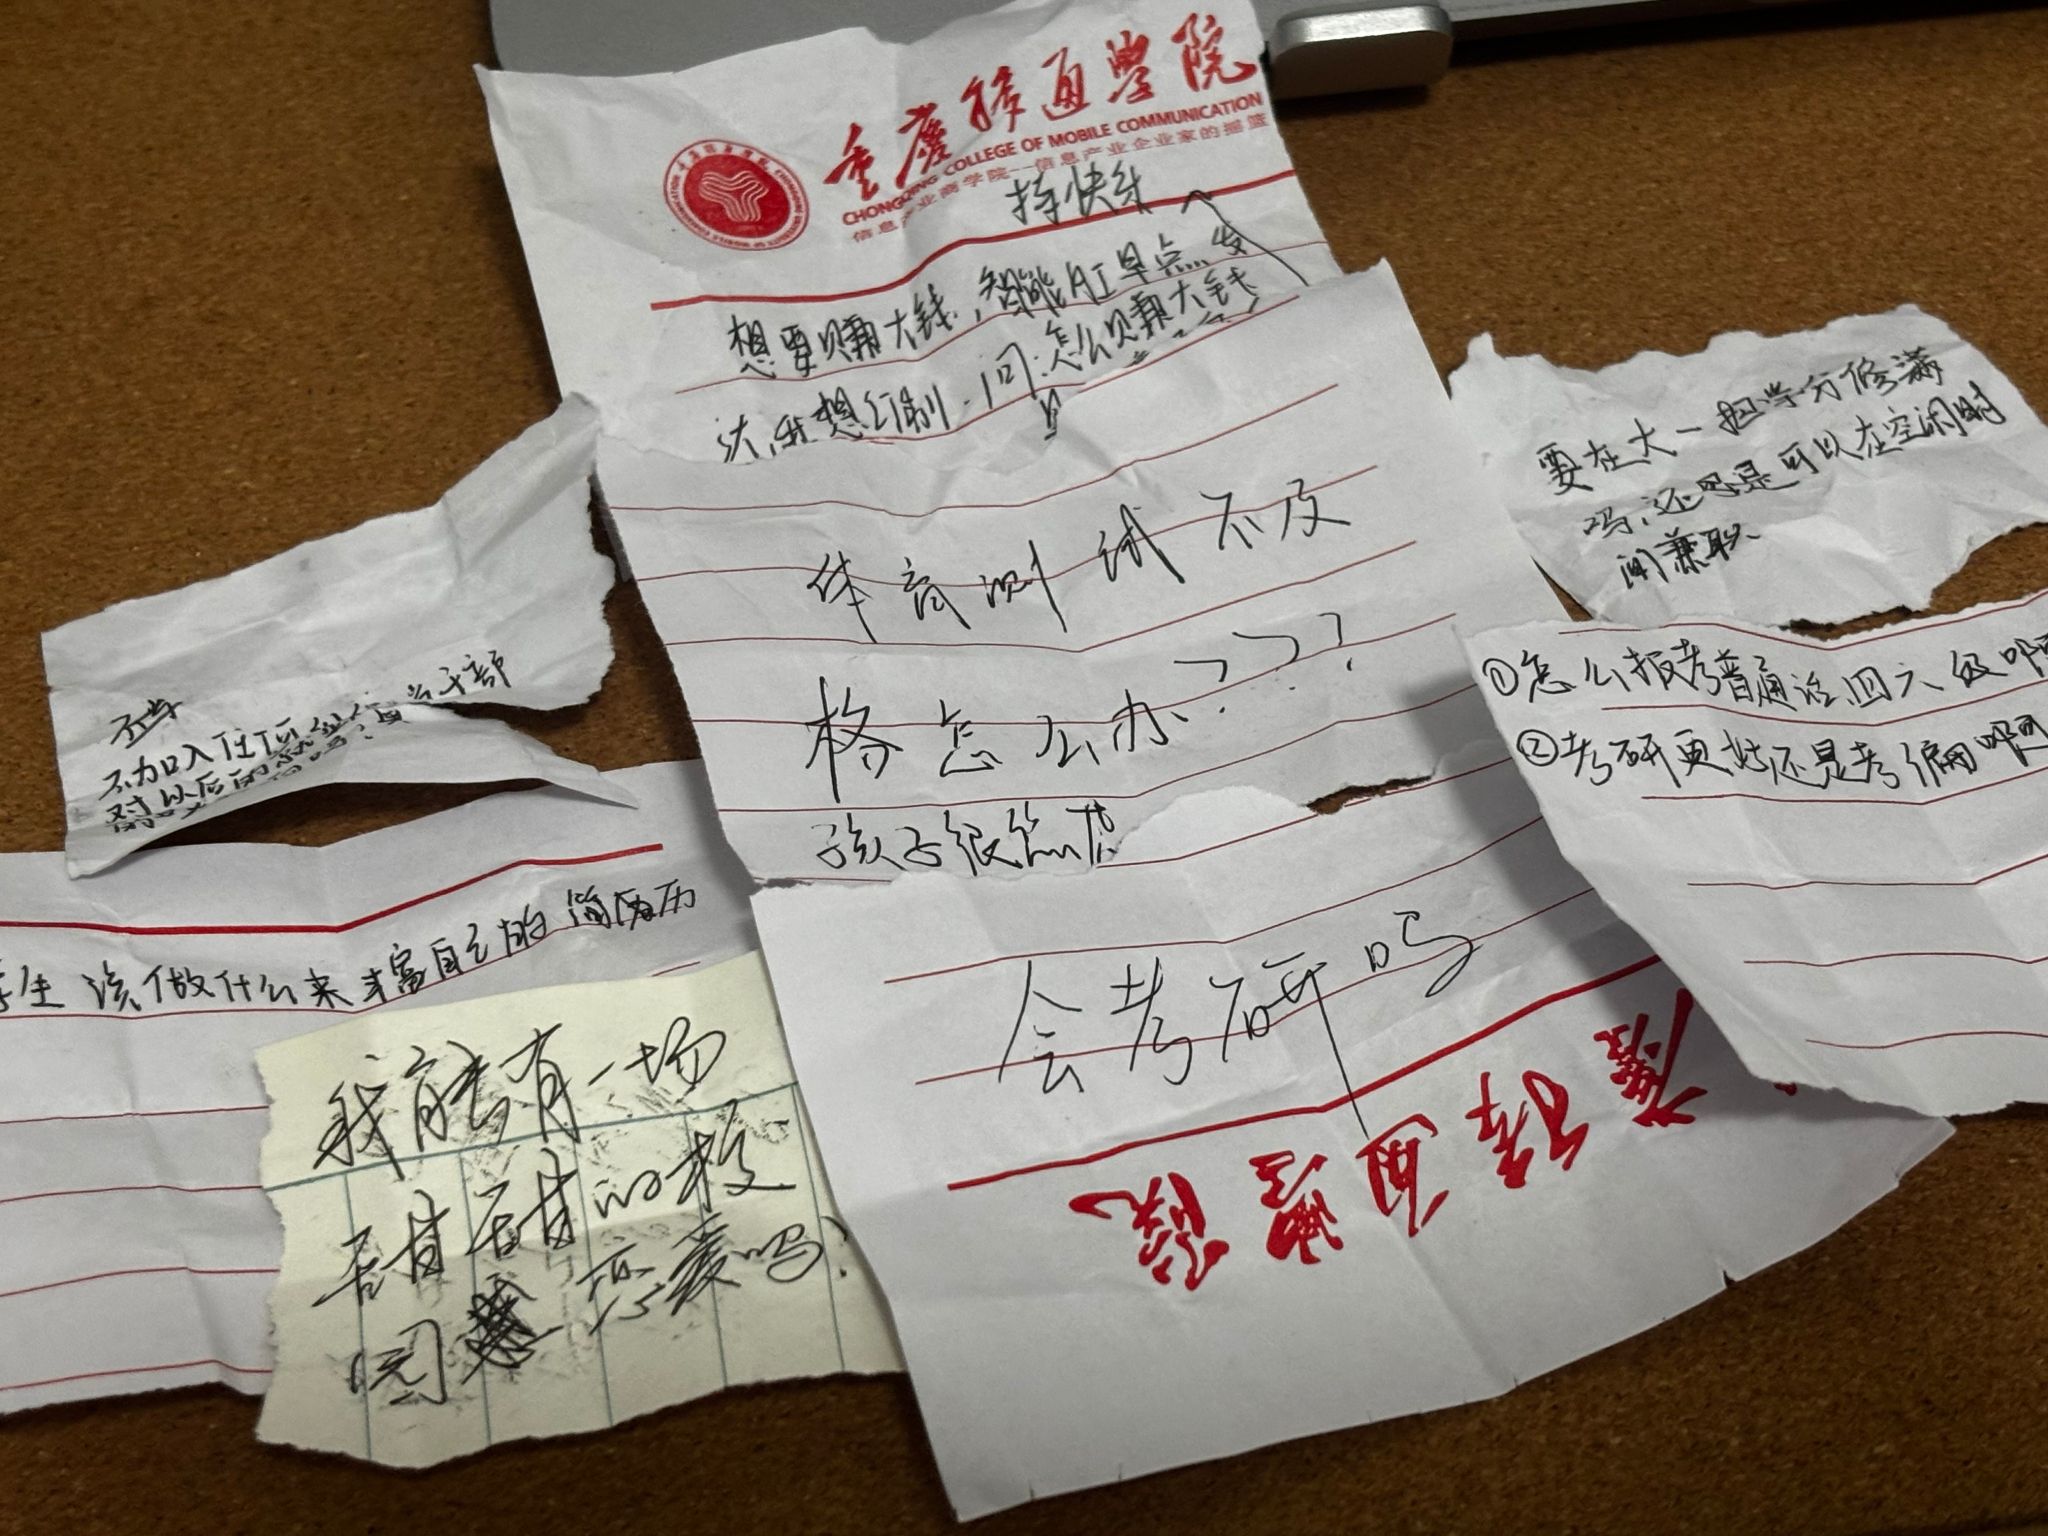 重慶移通學院
CHONGQING COLLEGE OF MOBILE COMMUNICATION
信息产业商学院——信息产业企业家的摇篮
持快乐
想要赚大钱,智能肛早点发
达,我想幻制.问:怎么赚大钱
要在大一把学分修满
吗,还是可以在空闲时
间兼职
体育测试不及
格怎么办???
孩子很焦虑
不加入任何组织
对以后的
①怎么报考普通话四六级
②考研更难还是考编
学生该做什么来丰富自己的简历
会考研吗
我能有一场
甜甜的校
园恋爱吗?
移通學院